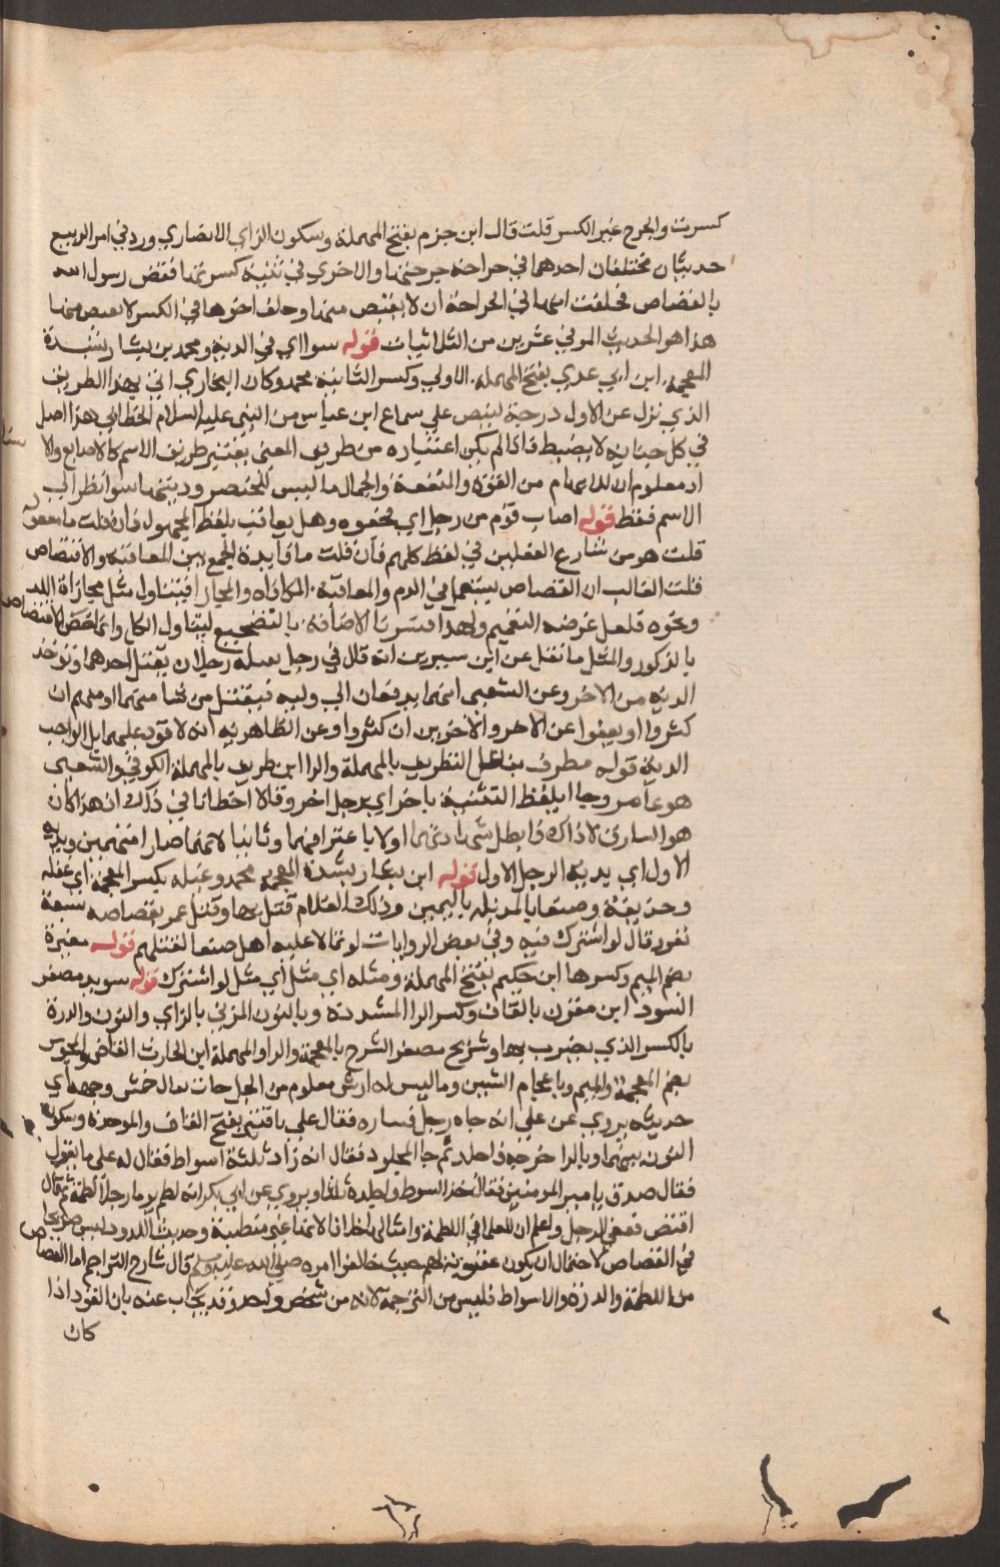 كسرت والجرح غير الكسر قلت قال ابن حزم بفتح المهملة وسكون الزاي الانصاري ورد في امر الربيع
حديثان مختلفان احدهما في جراحة جرحتها والاخري في ثنية كسرتها فقض رسول الله
بالقصاص فحلفت امها في الجراحة ان لا يقتص منها وحلف اخوها في الكسر لا يقتص منها
هذا هو الحديث الموفي عشرين من الثلاثيات قوله سوا اي في الدية ومحمد بن بشار بشدة
المعجمة ابن ابي عدي بفتح المهملة الاولي وكسر الثانية محمد وكان البخاري اتي بهذا الطريق
الذي نزل عن الاول درجة لينص علي سماع ابن عباس من النبي عليه السلام الخطابي هذا اصل
في كل جناية لا يضبط فاذا لم يكن اعتباره من طريق المعني يعتبر طريق الاسم كالاصابع والا
اذ معلوم ان للابهام من القوة والمنفعة والجمال ما ليس للخنصر وديتهما سوا نظرا الي
الاسم فقط قوله اصاب قوم من رجل اي فجعوه وهل يعاقب بلفظ المجهول فان قلت ما مفعول
قلت هو من تنازع الفعلين في لفظ كلهم فان قلت ما فايدة الجمع بين المعاقبة والاقتصاص
قلت الغالب ان القصاص يستعمل في الدم والمعاقبة المكافاة والمجازاة فيتناول مثل مجازاة اللد
ونحوه فلعل غرضه التعميم ولهذا فسرنا الاصابة بالتفجيع ليتناول الكل وانما خص الاقتصاص
بالذكور والمثل ما نقل عن ابن سيرين انه قال في رجل يقتله رجلان يقتل احدهما وتوخذ
الدية من الاخر وعن الشعبي انهما يدفعان الي وليه فيقتل من شا منهما او منهم ان
كثروا او يعفوا عن الاخر والاخرين ان كثروا وعن الظاهرية انه لا قود عليهما بل الواجب
الدية قوله مطرف بفاعل التطريف بالمهملة والرا ابن طريف بالمهملة الكوفي والشعبي
هو عامر وجاا بلفظ التثنية باخر اي برجل اخر وقالا اخطانا في ذلك ان هذا كان
هو السارق لا ذاك فابطل شهادتهما اولا باعترافهما وثانيا لانهما صارا متهمين وبدية
الاول اي بدية الرجل الاول قوله ابن بشار بشدة المعجمة محمد وغيلة بكسر المعجمة اي غفلة
وخديعة وصنعا بالمد بلد باليمن وذلك الغلام قتل بها وقتل عمر بقصاصه سبعة
نفر وقال لو اشترك فيه وفي بعض الروايات لو تمالا عليه اهل صنعا لقتلتهم قوله مغيرة
بضم الميم وكسرها ابن حكيم بفتح المهملة ومثله اي مثل لو اشترك قوله سويد مصغر
السود ابن مقرن بالقاف وكسر الرا المشددة وبالنون المزني بالزاي والنون والدرة
بالكسر الذي يضرب بها وشريح مصغر الشرح بالمعجمة والرا والمهملة ابن الحارث القاضي والخموش
بضم المعجمة والميم وباعجام الشين وما ليس له ارش معلوم من الجراحات يقال خمش وجهه اي
خدشه يروي عن علي انه جاه رجل فساره فقال علي يا قنبر بفتح القاف والموحدة وسكون
النون بينهما وبالرا اخرجه فاجلده ثم جا المجلود فقال انه زاد ثلثة اسواط فقال له علي ما يقول
فقال صدق يا امير المومنين فقال خذ السوط واجلده ثلثا ويروي عن ابي بكر انه لطم يوما رجلا لطمة ثم قال
اقتص فعفي الرجل
في القصاص لاحتمال ان يكون عقوبة لهم حيث خالفوا امره صلي الله عليه وسلم قال شارح التراجم اما القصاص
من اللطمة والدرة والاسواط فليس من الترجمة لانه من شخص واحد وقد يجاب عنه بان القود اذا
كان